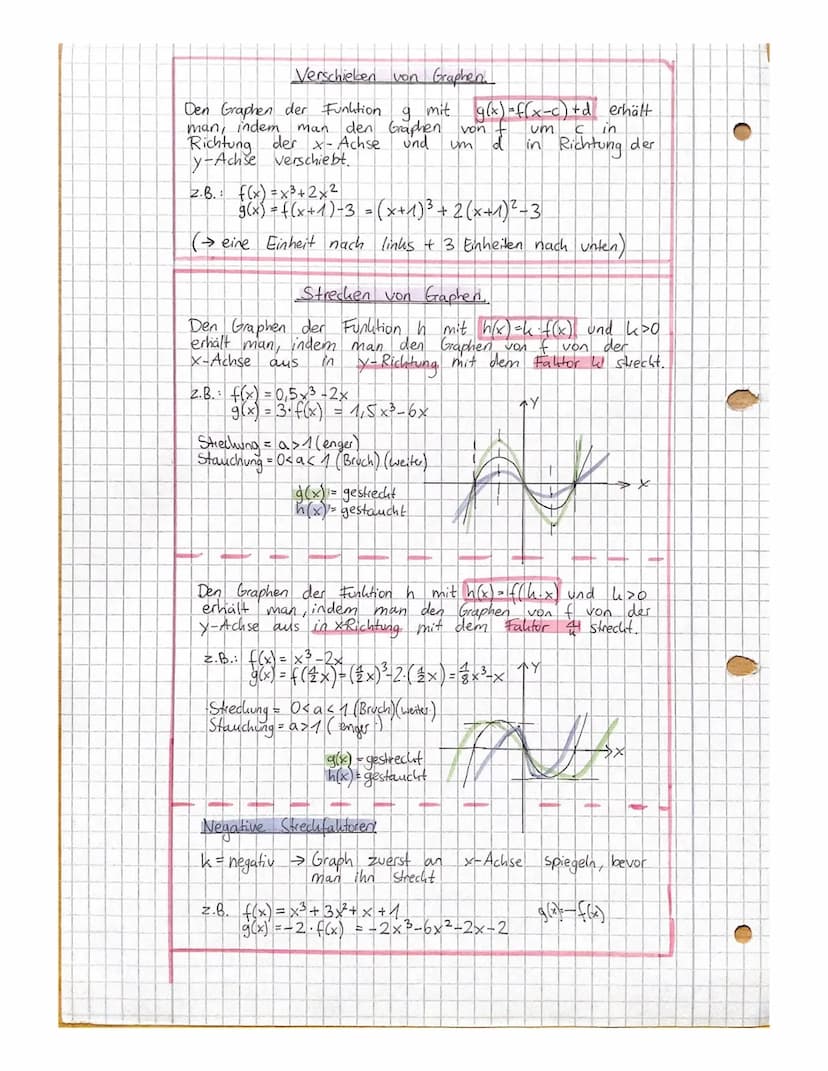 Verschieben von Graphen
Den Graphen der Funktion g mit g(x)=f(x-c)+d erhält
man, indem man den Graphen von f um c in
Richtung der x-Achse und um d in Richtung der
y-Achse verschiebt.
z.B.: f(x)=x³+2x²
g(x)=f(x+1)-3 =(x+1)³+2(x+1)²-3
(→ eine Einheit nach links + 3 Einheiten nach unten)
Strecken von Gaphen
Den Graphen der Funktion h mit h(x)=k·f(x) und k>0
erhält man, indem man den Graphen von f von der
x-Achse aus in y-Richtung mit dem Faktor k streckt.
z.B.: f(x)=0,5x³-2x
g(x)=3·f(x) = 1,5x³-6x
Streckung = a>1 (enger)
Stauchung = 0<a<1 (Bruch) (weiter)
g(x) = gestreckt
h(x) = gestaucht
y
x
Den Graphen der Funktion h mit h(x)=f(k·x) und k>0
erhält man, indem man den Graphen von f von der
y-Achse aus in x-Richtung mit dem Faktor 1/k streckt.
z.B.: f(x)=x³-2x
g(x)=f(½x)=(½x)³-2·(½x)=⅛x³-x
Streckung = 0<a<1 (Bruch)(weiter)
Stauchung = a>1 (enger)
g(x) = gestreckt
h(x) = gestaucht
y
x
Negative Streckfaktoren
k = negativ → Graph zuerst an x-Achse spiegeln, bevor
man ihn streckt
z.B. f(x)=x³+3x²+x+1
g(x)=-2·f(x) = -2x³-6x²-2x-2
g(x)=-f(x)